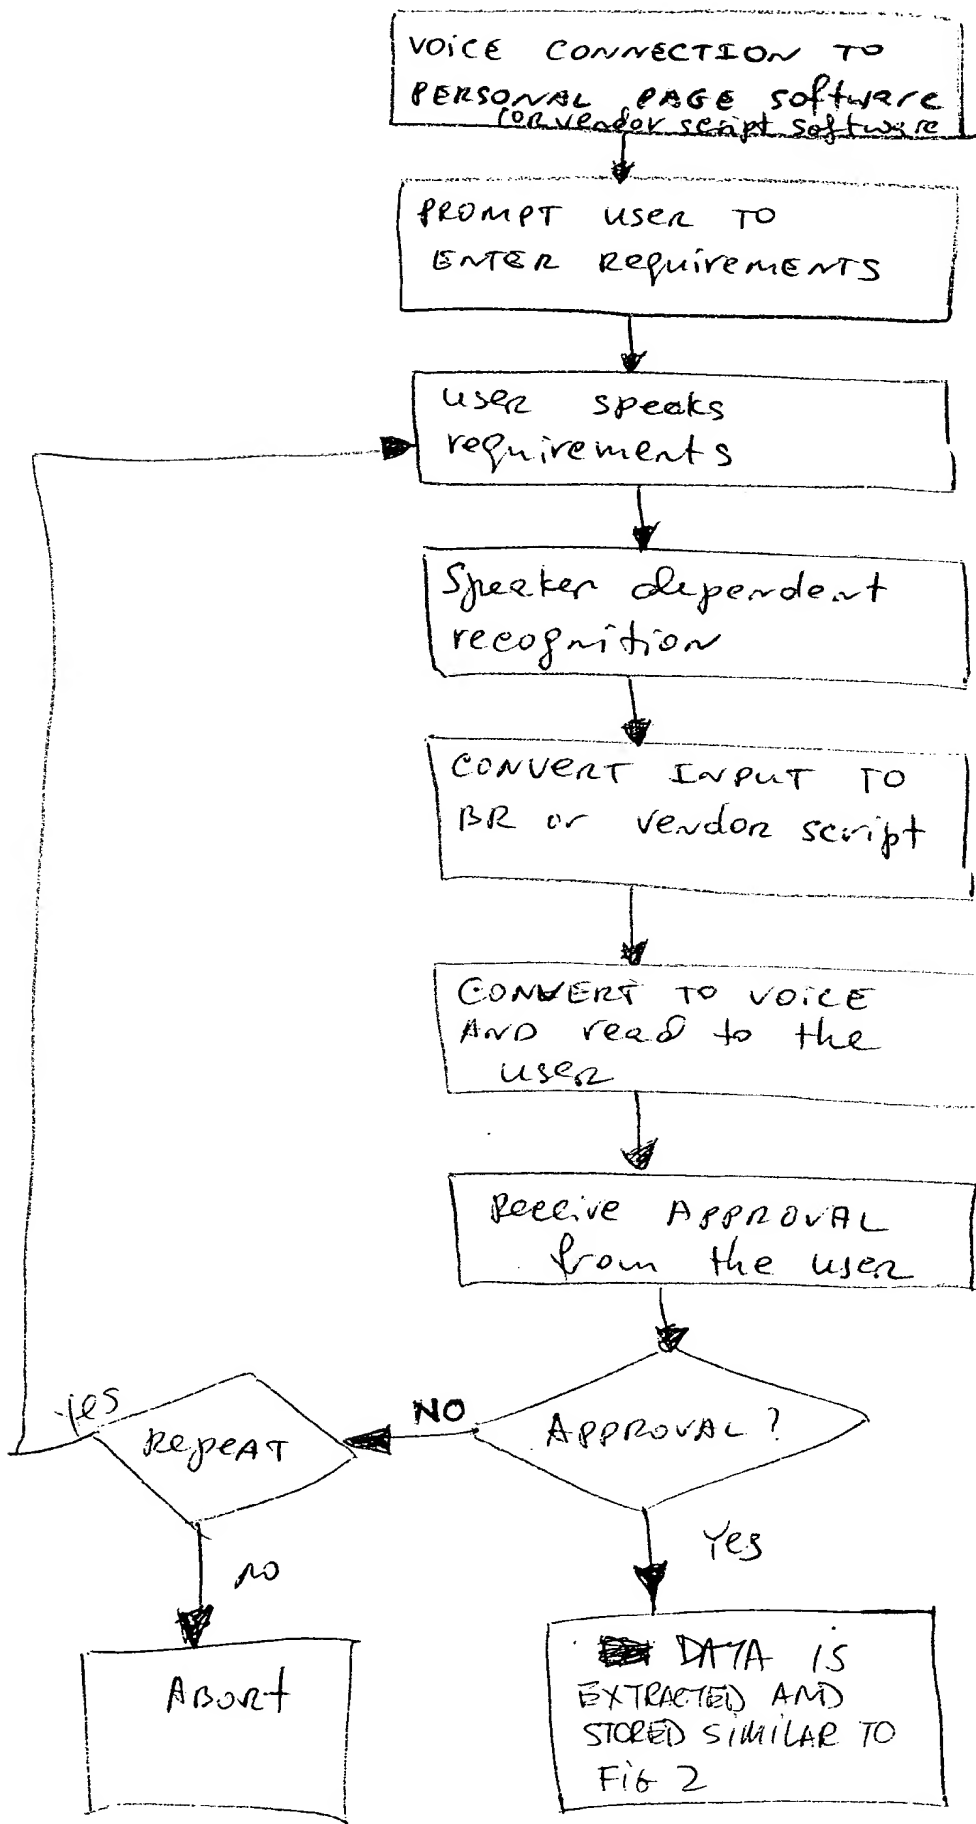 VOICE CONNECTION TO
PERSONAL PAGE software
(OR vendor script software
PROMPT USER TO
ENTER REquiREMENTS
user speaks
requirements
Speaker dependent
recognition
CONVERT INPUT TO
BR or vendor script
CONVERT TO VOICE
AND read to the
user
Receive APPROVAL
from the user
APPROVAL?
NO
REPEAT
yes
no
Yes
ABORT
DATA IS
EXTRACTED AND
STORED SIMILAR TO
FIG 2